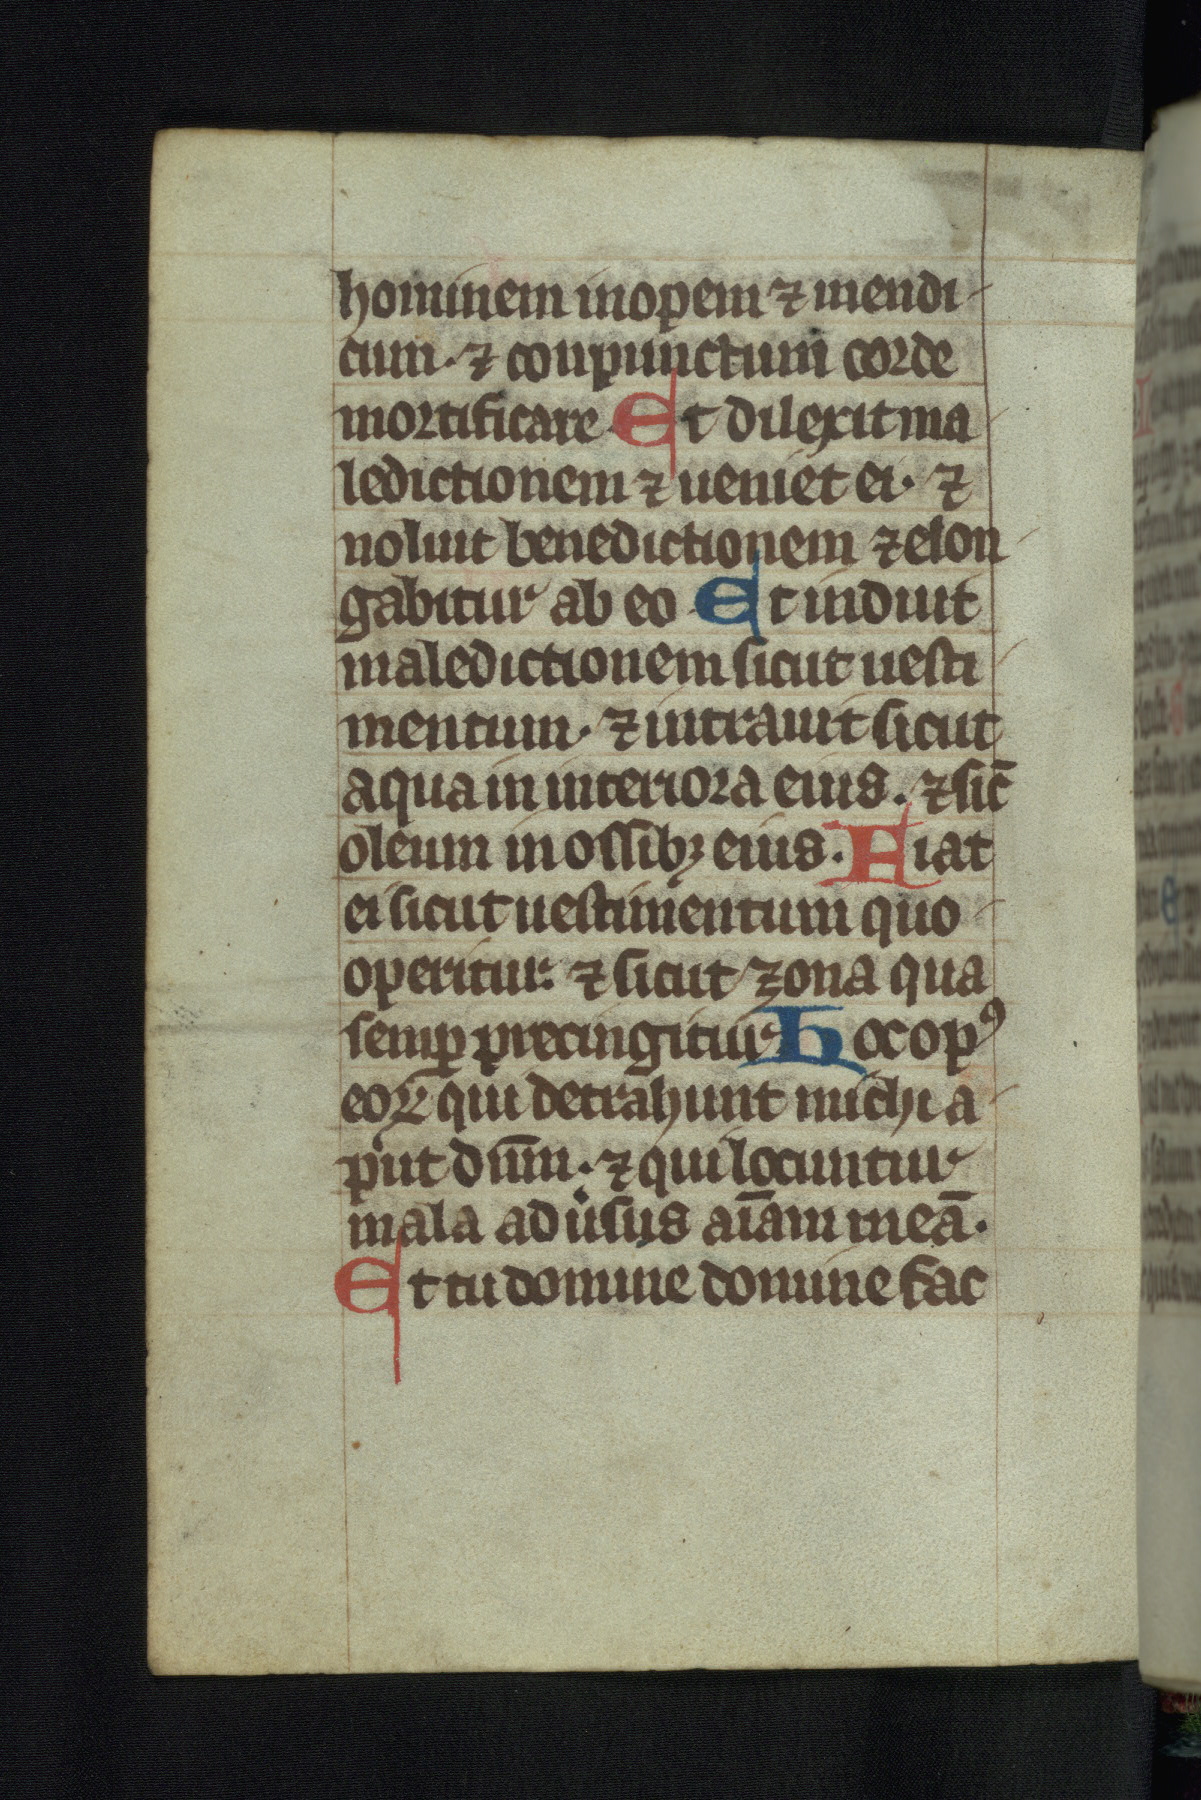 hominem inopem ⁊ mendi
cum. ⁊ conpunctum corde
mortificare Et dilexit ma
ledictionem ⁊ ueniet ei. ⁊
noluit benedictionem ⁊ elon
gabitur ab eo Et induit
maledictionem sicut uesti
mentum. ⁊ intrauit sicut
aqua in interiora eius. ⁊ sic̄
oleum in ossibꝫ eius. Fiat
ei sicut uestimentum quo
operitur. ⁊ sicut zona qua
semꝑ precingitur Hoc opꝰ
eoꝝ qui detrahunt michi a
put dn̄m. ⁊ qui locuntur
mala adu͛sus aīam meā.
Et tu domine domine fac